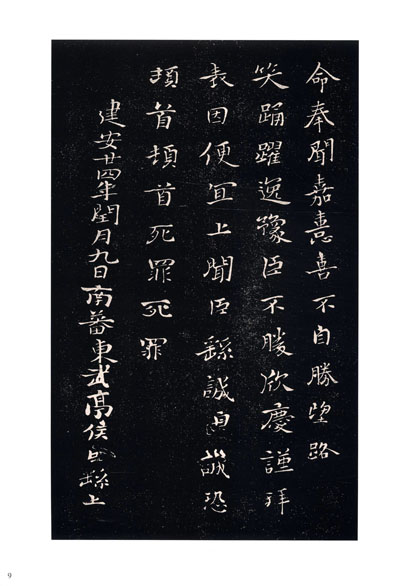 命奉聞嘉憙喜不自勝望路
笑踊躍逸豫臣不勝欣慶謹拜
表因便宜上聞臣繇誠皇誠恐
頓首頓首死罪死罪
建安廿四年閏月九日南蕃東武亭侯臣繇上
9